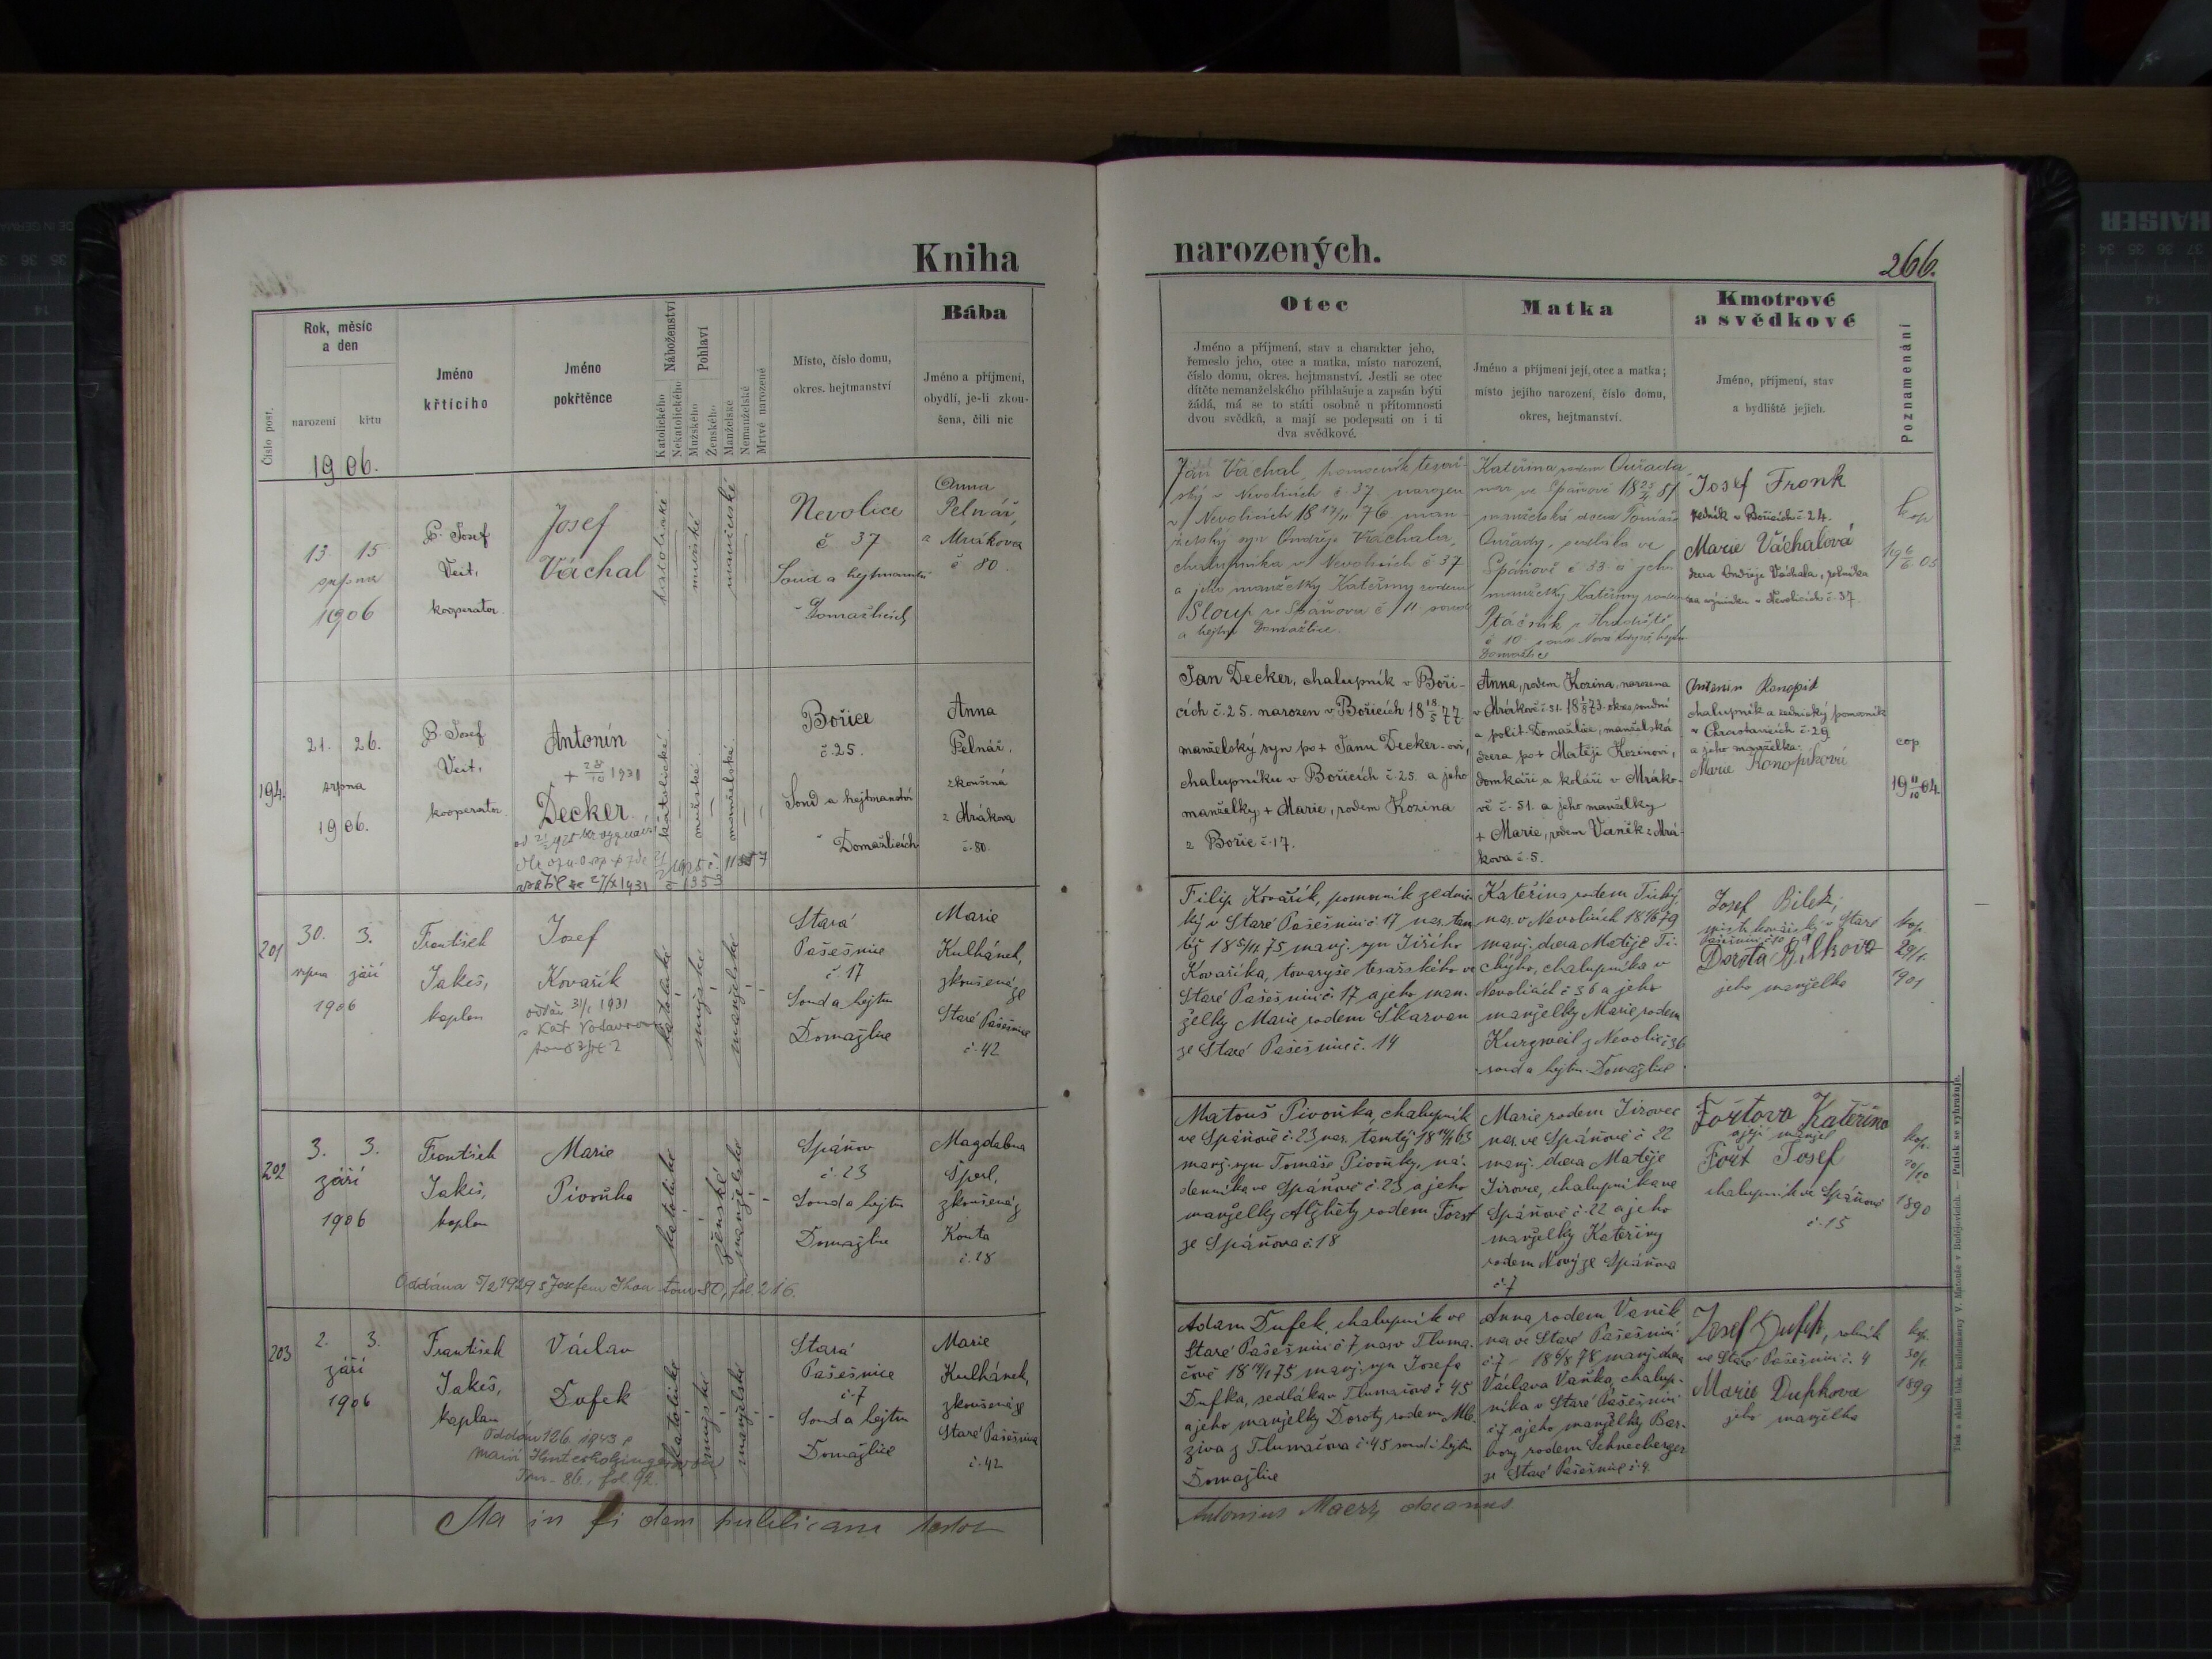 Kniha narozených.
266.
Číslo post.
Rok, měsíc
a den
narození
křtu
Jméno
křtícího
Jméno
pokřtěnce
Náboženství
Katolického
Nekatolického
Pohlaví
Mužského
Ženského
Manželské
Nemanželské
Mrtvě narozené
Místo, číslo domu,
okres. hejtmanství
Bába
Jméno a příjmení,
obydlí, je-li zkou-
šena, čili nic
Otec
Jméno a příjmení, stav a charakter jeho,
řemeslo jeho, otec a matka, místo narození,
číslo domu, okres. hejtmanství. Jestli se otec
dítěte nemanželského přihlašuje a zapsán býti
žádá, má se to státi osobně u přítomnosti
dvou svědků, a mají se podepsati on i ti
dva svědkové.
Matka
Jméno a příjmení její, otec a matka;
místo jejího narození, číslo domu,
okres, hejtmanství.
Kmotrové
a svědkové
Jméno, příjmení, stav
a bydliště jejich.
Poznamenání
1906.
13. 15
srpna
1906
P. Josef
Veit,
kooperator.
Josef
Váchal
katolické
mužské
manželské
Nevolice
č 37
Soud a hejtmanství
Domažlicích
Anna
Pelnář,
z Mrákova
č 80.
Jan Váchal, pomocník tesař-
ský v Nevolicích č 37 narozen
v Nevolicích 18 17/11 76 man-
želský syn Ondřeje Váchala,
chalupníka v Nevolicích č 37
a jeho manželky Kateřiny rodem
Sloup ze Spáňova č 11 soud
a hejtm Domažlice.
Kateřina rodem Ouřada
nar ve Spáňově 18 25/4 81
manželská dcera Tomáše
Ouřady, sedláka ve
Spáňově č 33 a jeho
manželky Kateřiny rodem
Ptáčník z Hradiště
č 10. soud Nová Kdyně, hejtm
Domažlice
Josef Fronk
zedník v Bořicích č 24.
Marie Váchalová
dcera Ondřeje Váchala, rolníka
na výminku v Nevolicích č. 37.
kop
19 6/6 05
194.
21. 26.
srpna
1906.
P. Josef
Veit,
kooperator.
Antonín
+ 28/10 1931
Decker.
vrátil se 27/X 1931
katolické
mužské
manželské
Bořice
č. 25.
Soud a hejtmanství
v Domažlicích
Anna
Pelnář.
zkoušená
z Mrákova
č. 80.
Jan Decker, chalupník v Boři-
cích č. 25. narozen v Bořicích 18 18/5 77.
manželský syn po + Janu Decker-ovi,
chalupníku v Bořicích č. 25. a jeho
manželky, + Marie, rodem Kozina
z Bořic č. 17.
Anna, rodem Kozina, narozena
v Mrákově č. 51. 18 1/8 73. okres, soudní
a polit. Domažlice, manželská
dcera po + Matěji Kozinovi,
domkáři a koláři v Mráko-
vě č. 51. a jeho manželky
+ Marie, rodem Vaněk z Mrá-
kova č. 5.
Antonín Konopík
chalupník a zednický pomocník
v Chrastavicích č. 29
a jeho manželka:
Marie Konopíková
cop
19 11/10 04.
201
30. 3.
srpna září
1906
František
Jakeš,
kaplan
Josef
Kovařík
oddán 31/1 1931
katolické
mužské
manželské
Stará
Pašešnice
č. 17
Soud a hejtm
Domažlice
Marie
Kulhánek,
zkoušená ze
Staré Pašešnice
č. 42
Filip Kovařík, pomocník zednic-
ký v Staré Pašešnici č 17 nar. tam-
též 18 5/11 75 manž. syn Jiřího
Kovaříka, tovaryše tesařského ve
Staré Pašešnici č. 17 a jeho man-
želky Marie rodem Skarvan
ze Staré Pašešnice č. 14
Kateřina rodem Tichý
nar. v Nevolicích
manž. dcera Matěje Ti-
chýho, chalupníka v
Nevolicích č 36 a jeho
manželky Marie rodem
Kurzweil z Nevolic č 36
soud a hejtm Domažlice
Josef Bílek,
Dorota Bílková
jeho manželka
kop.
29/1.
1901
202
3. 3.
září
1906
František
Jakeš,
kaplan
Marie
Pivoňka
Oddána 5/2 1929 s Josefem tom 80, fol. 216.
katolické
ženské
manželské
Spáňov
č. 23
Soud a hejtm
Domažlice
Magdalena
Šperl,
zkoušená z
Kouta
č. 28
Matouš Pivoňka, chalupník
ve Spáňově č. 23 nar. tamtéž
manž. syn Tomáše Pivoňky, ná-
denníka ve Spáňově č 23 a jeho
manželky Alžběty rodem Forst
ze Spáňova č. 18
Marie rodem Jirovec
nar. ve Spáňově č 22
manž. dcera Matěje
Jirovce, chalupníka ve
Spáňově č. 22 a jeho
manželky Kateřiny
rodem Nový ze Spáňova
č. 7
Fořtova Kateřina
a její manžel
Fořt Josef
chalupník ve Spáňově
č. 15
kop.
1890
203
2. 3.
září
1906
František
Jakeš,
kaplan
Václav
Dufek
Oddán 12.6. 1943 s
Marií Hinterholzingerovou
Tom. 86., fol. 92.
katolické
mužské
manželské
Stará
Pašešnice
č. 7
Soud a hejtm
Domažlice
Marie
Kulhánek,
zkoušená ze
Staré Pašešnice
č. 42
Adam Dufek, chalupník ve
Staré Pašešnici č 7 nar. v Tluma-
čově manž. syn Josefa
Dufka, sedláka v Tlumačově č 45
a jeho manželky Doroty rodem
z Tlumačova č. 45 soud i hejtm
Domažlice
Anna rodem Vaněk
na ve Staré Pašešnici
č. 7 18 6/8 78 manž. dcera
Václava Vaňka, chalup-
níka v Staré Pašešnici
č 7 a jeho manželky Bar-
bory rodem Schneeberger
ze Staré Pašešnice č. 4.
Josef Dufek, rolník
ve Staré Pašešnici č. 4
Marie Dufkova
jeho manželka
kop.
30/1.
1899
Ita in fidem publicam testor
Antonius Maerz decanus.
Tisk a sklad knihtiskárny V. Matoušé v Budějovicích. — Patisk se vyhražuje.
KAISER